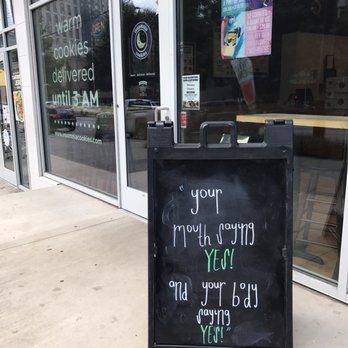 warm
cookies
delivered
until 3 AM
"your
mouth saying
YES!
and your body
saying
YES!"